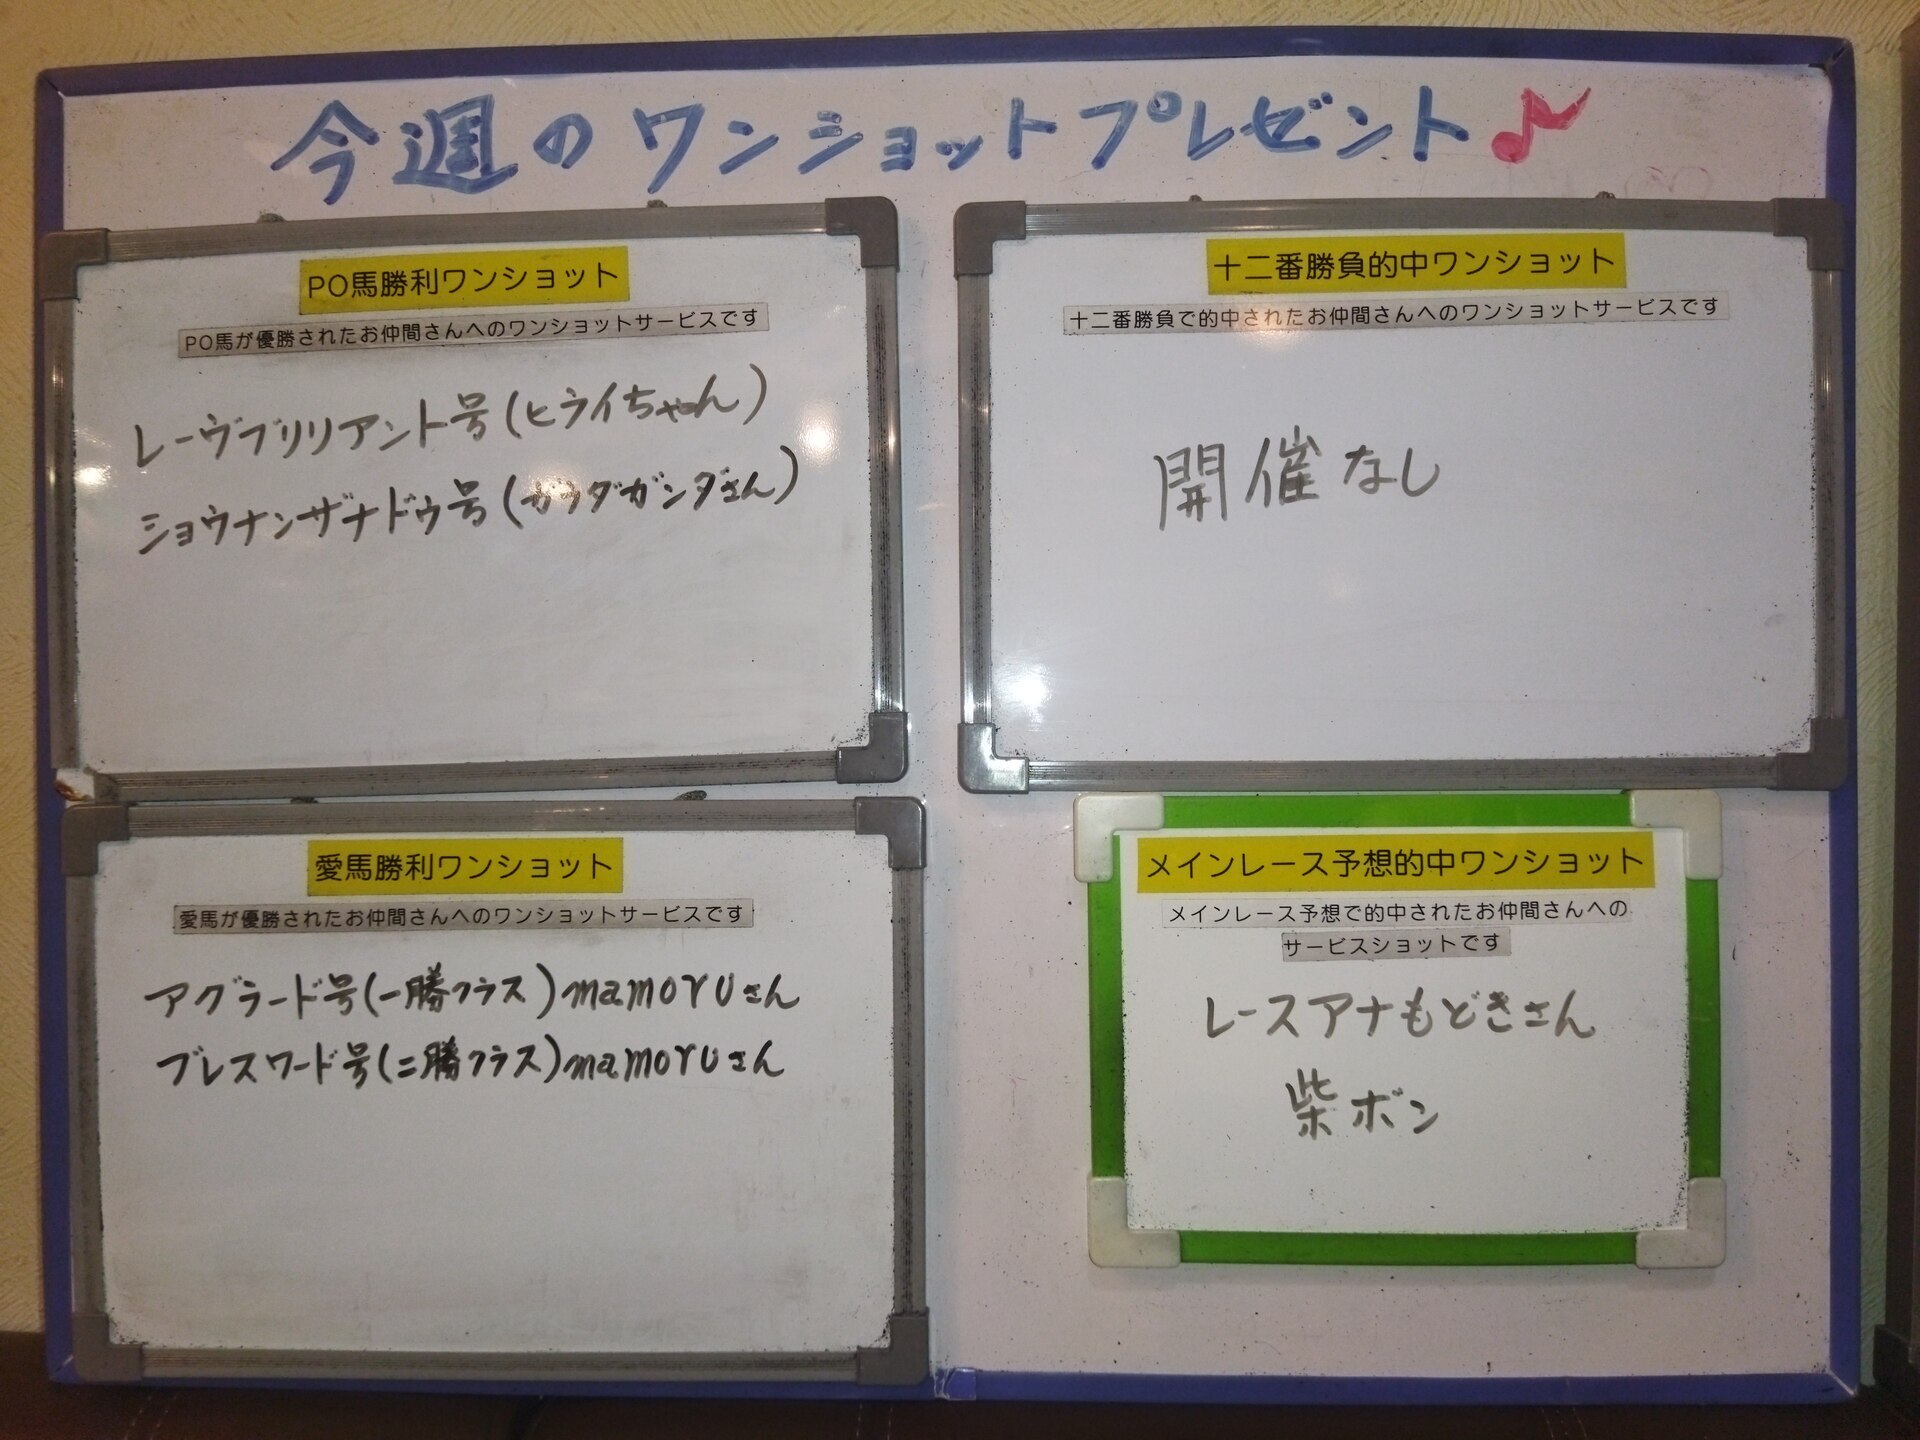 今週のワンショットプレゼント♪
PO馬勝利ワンショット
PO馬が優勝されたお仲間さんへのワンショットサービスです
レーヴブリリアント号(ヒライちゃん)
ショウナンザナドゥ号(ガンダガンダさん)
十二番勝負的中ワンショット
十二番勝負で的中されたお仲間さんへのワンショットサービスです
開催なし
愛馬勝利ワンショット
愛馬が優勝されたお仲間さんへのワンショットサービスです
アグラード号(一勝クラス)mamoruさん
ブレスワード号(二勝クラス)mamoruさん
メインレース予想的中ワンショット
メインレース予想で的中されたお仲間さんへの
サービスショットです
レースアナもどきさん
柴ボン